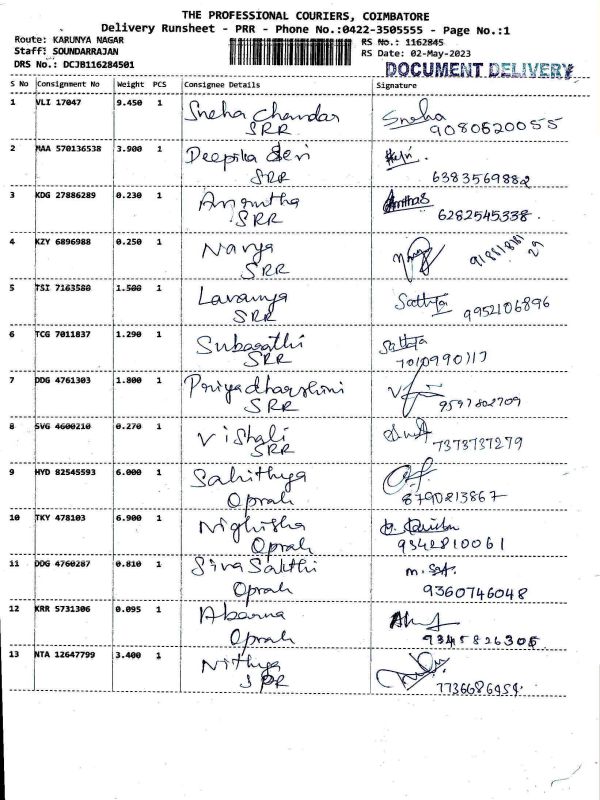 THE PROFESSIONAL COURIERS, COIMBATORE
Delivery Runsheet - PRR - Phone No.:0422-3505555 - Page No.:1
Route: KARUNYA NAGAR RS No.: 1162845
Staff: SOUNDARRAJAN RS Date: 02-May-2023
DRS No.: DCJB116284501 DOCUMENT DELIVERY
S No Consignment No Weight PCS Consignee Details Signature
1 VLI 17047 9.450 1 Sneha Chandar Sneha
SRR 9080620055
2 MAA 570136538 3.900 1 Deepika devi
SRR 6383569882
3 KDG 27886289 0.230 1
SRR 6282545338.
4 KZY 6896988 0.250 1 Navya
SRR
5 TSI 7163580 1.500 1 Lavanya
SRR 9952106896
6 TCG 7011837 1.290 1 Subarathi
SRR 7010990117
7 DDG 4761303 1.800 1 Priyadharshini
SRR 9597802709
8 SVG 4600210 0.270 1 Vishali
SRR 7373737279
9 HYD 82545593 6.000 1 Sahithya
Oprah 8790213867
10 TKY 478103 6.900 1 Nighisha
Oprah 9342810061
11 DDG 4760287 0.810 1 Siva Sakthi m. Sat.
Oprah 9360746048
12 KRR 5731306 0.095 1 Abarna
Oprah 9345826305
13 NTA 12647799 3.400 1 Nithya